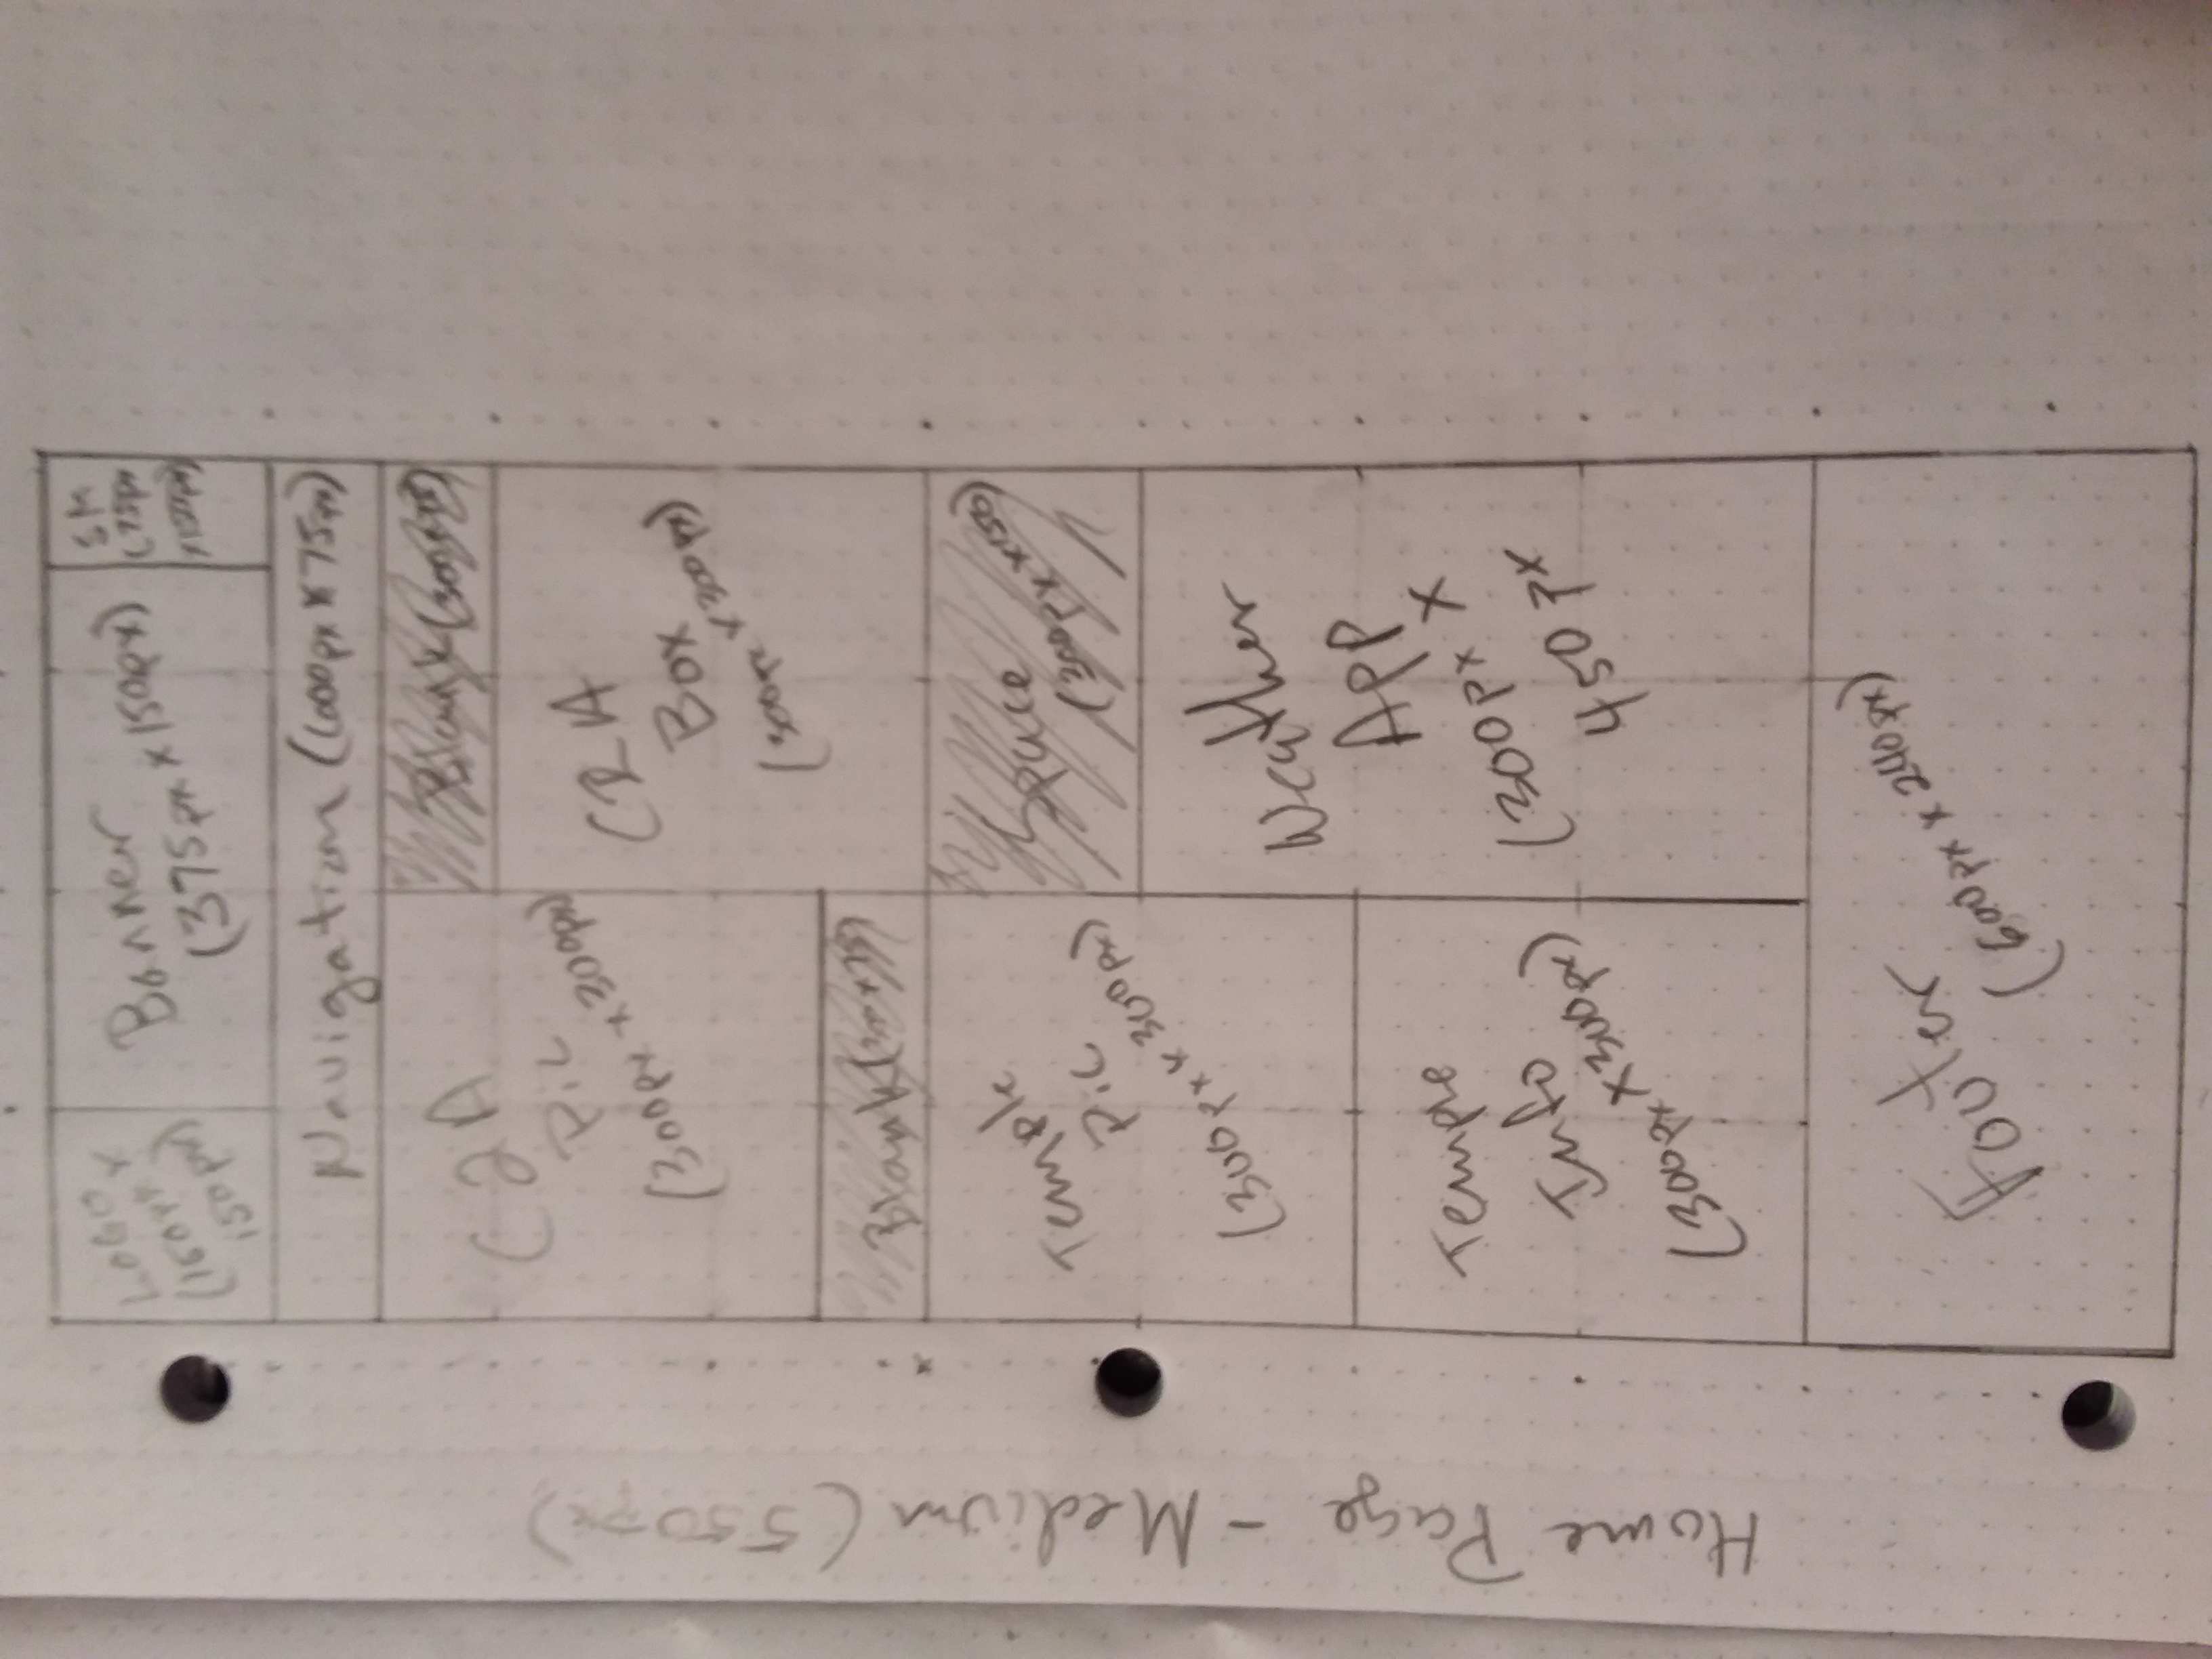 Home Page - Medium (550px)
LOGO
(150px x
150px)
Banner
(375px x 150px)
SM
(75px
x150px)
Navigation (600px x 75px)
C2A
Pic
(300px x 300px)
Blank (300x75)
C2A
Box
(300px x 300px)
Blank (300x75)
Temple
Pic
(300px x 300px)
Space
(300px x 150)
Temple
Info
(300px x 300px)
Weather
App
(300px x
450px
Footer
(600px x 240px)